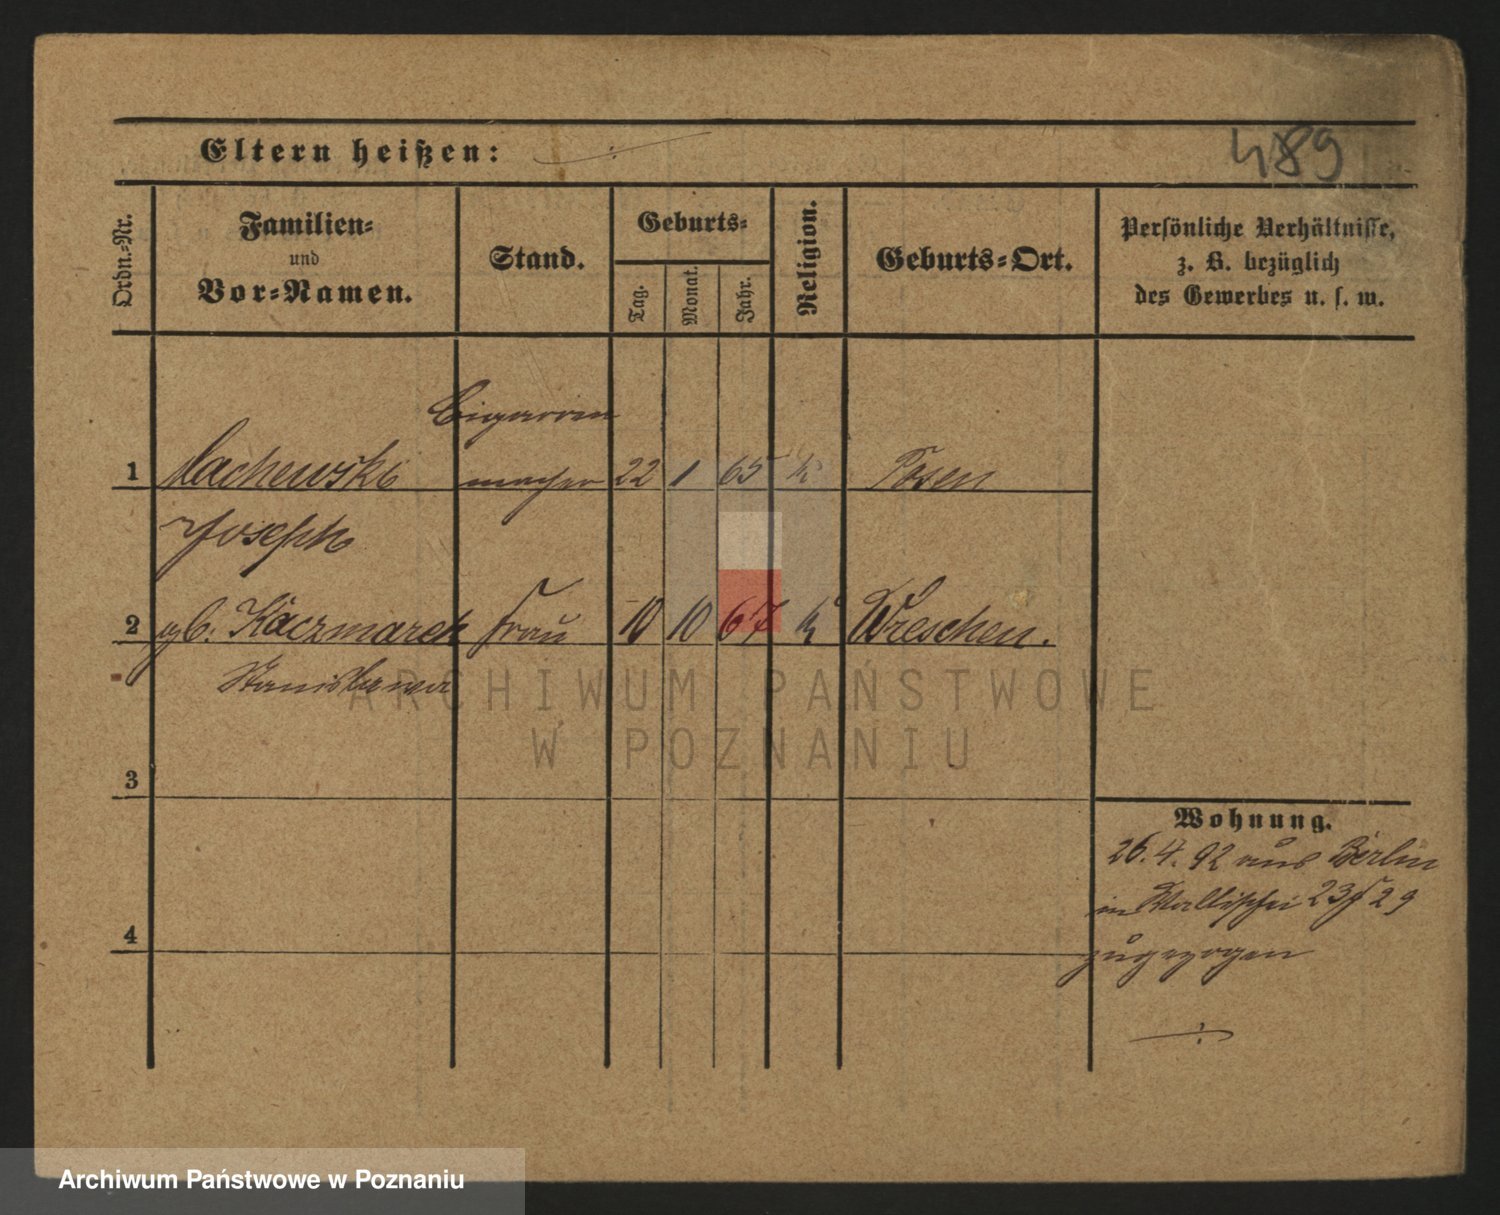 489
Eltern heißen:
Ordn.-Nr.
Familien-
und
Vor-Namen.
Stand.
Geburts-
Tag.
Monat.
Jahr.
Religion.
Geburts-Ort.
Persönliche Verhältnisse,
z. B. bezüglich
des Gewerbes u. s. w.
Cigarren
1 Machewski macher 22 1 65 k Posen
Joseph
2 gb. Kaczmarek Frau 10 10 67 k Wreschen.
Stanislawa
3
4
Wohnung.
26. 4. 92 aus Berlin
in Wallischei 29
zugezogen
ARCHIWUM PAŃSTWOWE
W POZNANIU
Archiwum Państwowe w Poznaniu